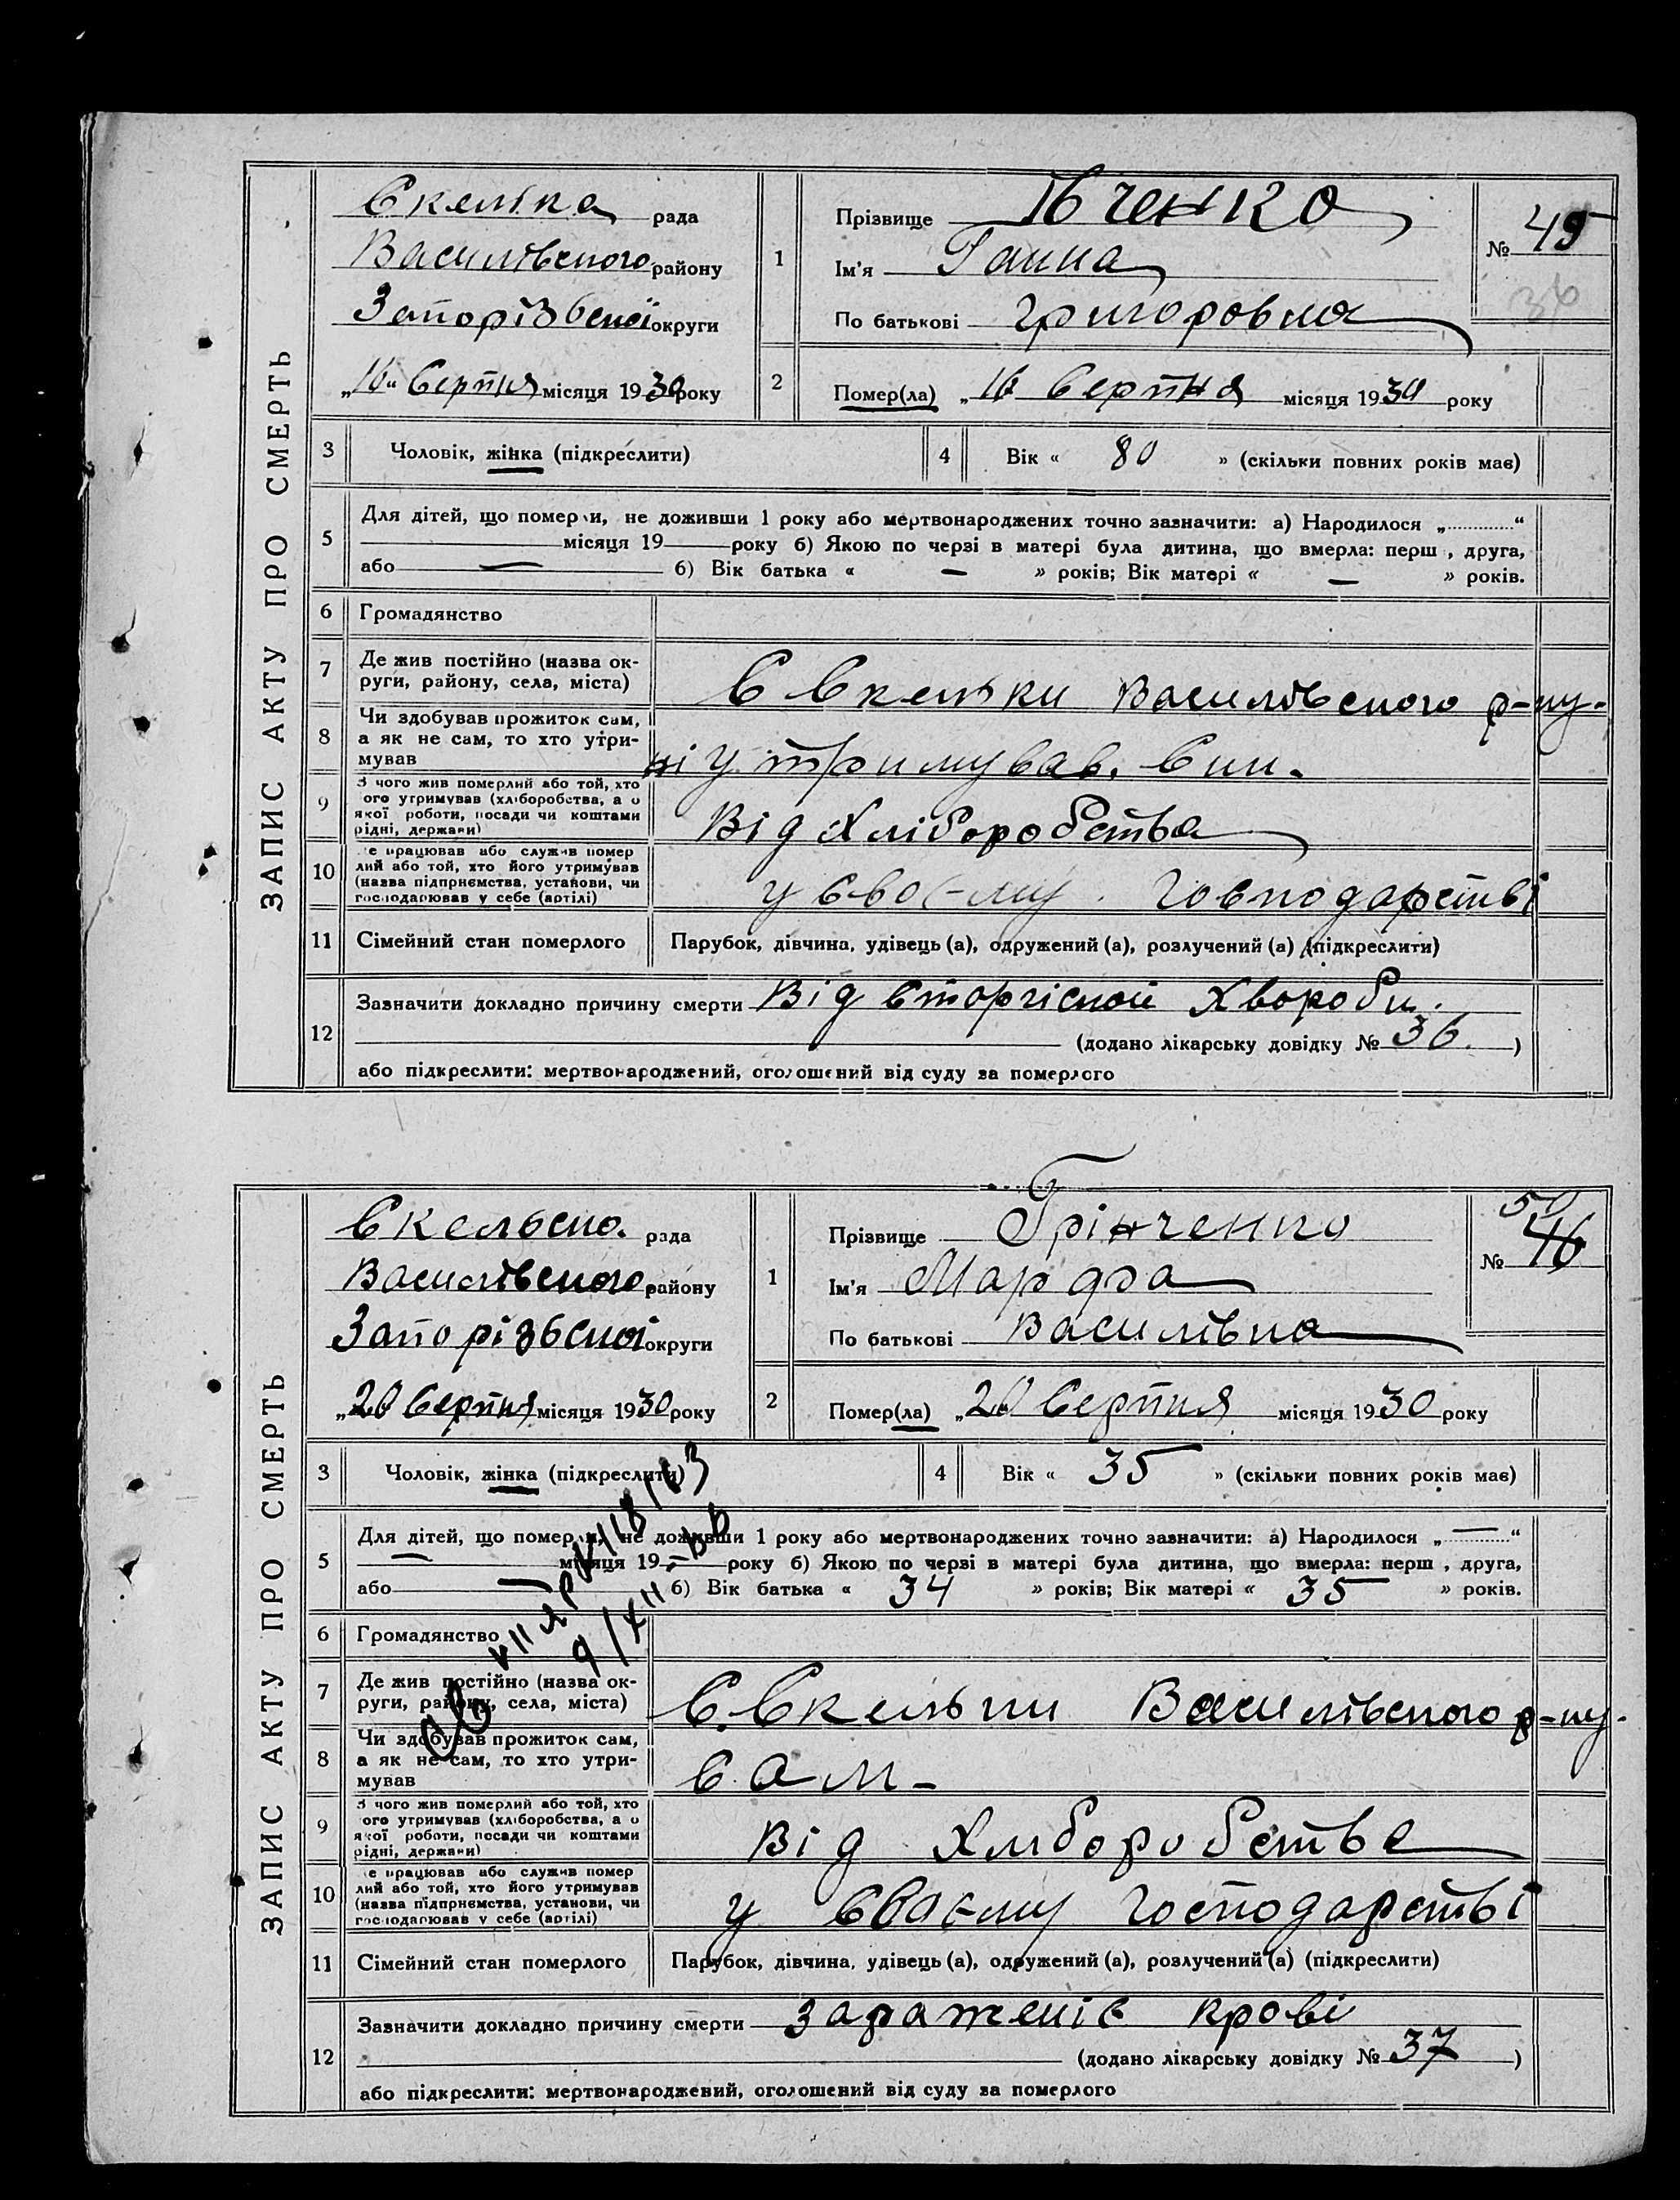 ЗАПИС АКТУ ПРО СМЕРТЬ
Скелька рада
Василівського району
Запорізької округи
„16“ Серпня місяця 1930 року
1
Прізвище Івченко
Ім'я Ганна
По батькові Григоровна
№ 49
36
2
Помер(ла) „16 Серпня місяця 1930 року
3 Чоловік, жінка (підкреслити)
4 Вік « 80 » (скільки повних років має)
5
Для дітей, що померли, не доживши 1 року або мертвонароджених точно зазначити: а) Народилося „............“
місяця 19 року б) Якою по черзі в матері була дитина, що вмерла: перш , друга,
або — б) Вік батька « — » років; Вік матері « — » років.
6 Громадянство
7 Де жив постійно (назва ок-
руги, району, села, міста)
С Скельки Василівського р-ну.
8 Чи здобував прожиток сам,
а як не сам, то хто утри-
мував
ні утримував. Син.
9 З чого жив померлий або той, хто
ого утримував (хліборобства, а о
якої роботи, посади чи коштами
рідні, держави)
Від Хліборобства
10 е працював або служив помер
лий або той, хто його утримував
(назва підприємства, установи, чи
господарював у себе (артілі)
у своє-му Господарстві
11 Сімейний стан померлого
Парубок, дівчина, удівець (а), одружений (а), розлучений (а) (підкреслити)
12
Зазначити докладно причину смерти Від Старчіской Хвороби.
(додано лікарську довідку № 36. )
або підкреслити: мертвонароджений, оголошений від суду за померлого
ЗАПИС АКТУ ПРО СМЕРТЬ
Скельсько. рада
Василівського району
Запорізької округи
„20 Серпня місяця 1930 року
1
Прізвище Грінченко
Ім'я Марфа
По батькові Василівна
50
№ 46
2
Помер(ла) „20 Серпня місяця 1930 року
3 Чоловік, жінка (підкреслити)
4 Вік « 35 » (скільки повних років має)
5
Для дітей, що померли, не доживши 1 року або мертвонароджених точно зазначити: а) Народилося „—“
— місяця 19 — року б) Якою по черзі в матері була дитина, що вмерла: перш , друга,
або — б) Вік батька « 34 » років; Вік матері « 35 » років.
6 Громадянство
7 Де жив постійно (назва ок-
руги, району, села, міста)
С. Скельки Василівського р-ну.
8 Чи здобував прожиток сам,
а як не сам, то хто утри-
мував
Сам-
9 З чого жив померлий або той, хто
ого утримував (хліборобства, а о
якої роботи, посади чи коштами
рідні, держави)
Від Хліборобства
10 е працював або служив помер
лий або той, хто його утримував
(назва підприємства, установи, чи
господарював у себе (артілі)
у своє-му Господарстві
11 Сімейний стан померлого
Парубок, дівчина, удівець (а), одружений (а), розлучений (а) (підкреслити)
12
Зазначити докладно причину смерти зараженіє крові
(додано лікарську довідку № 37 )
або підкреслити: мертвонароджений, оголошений від суду за померлого